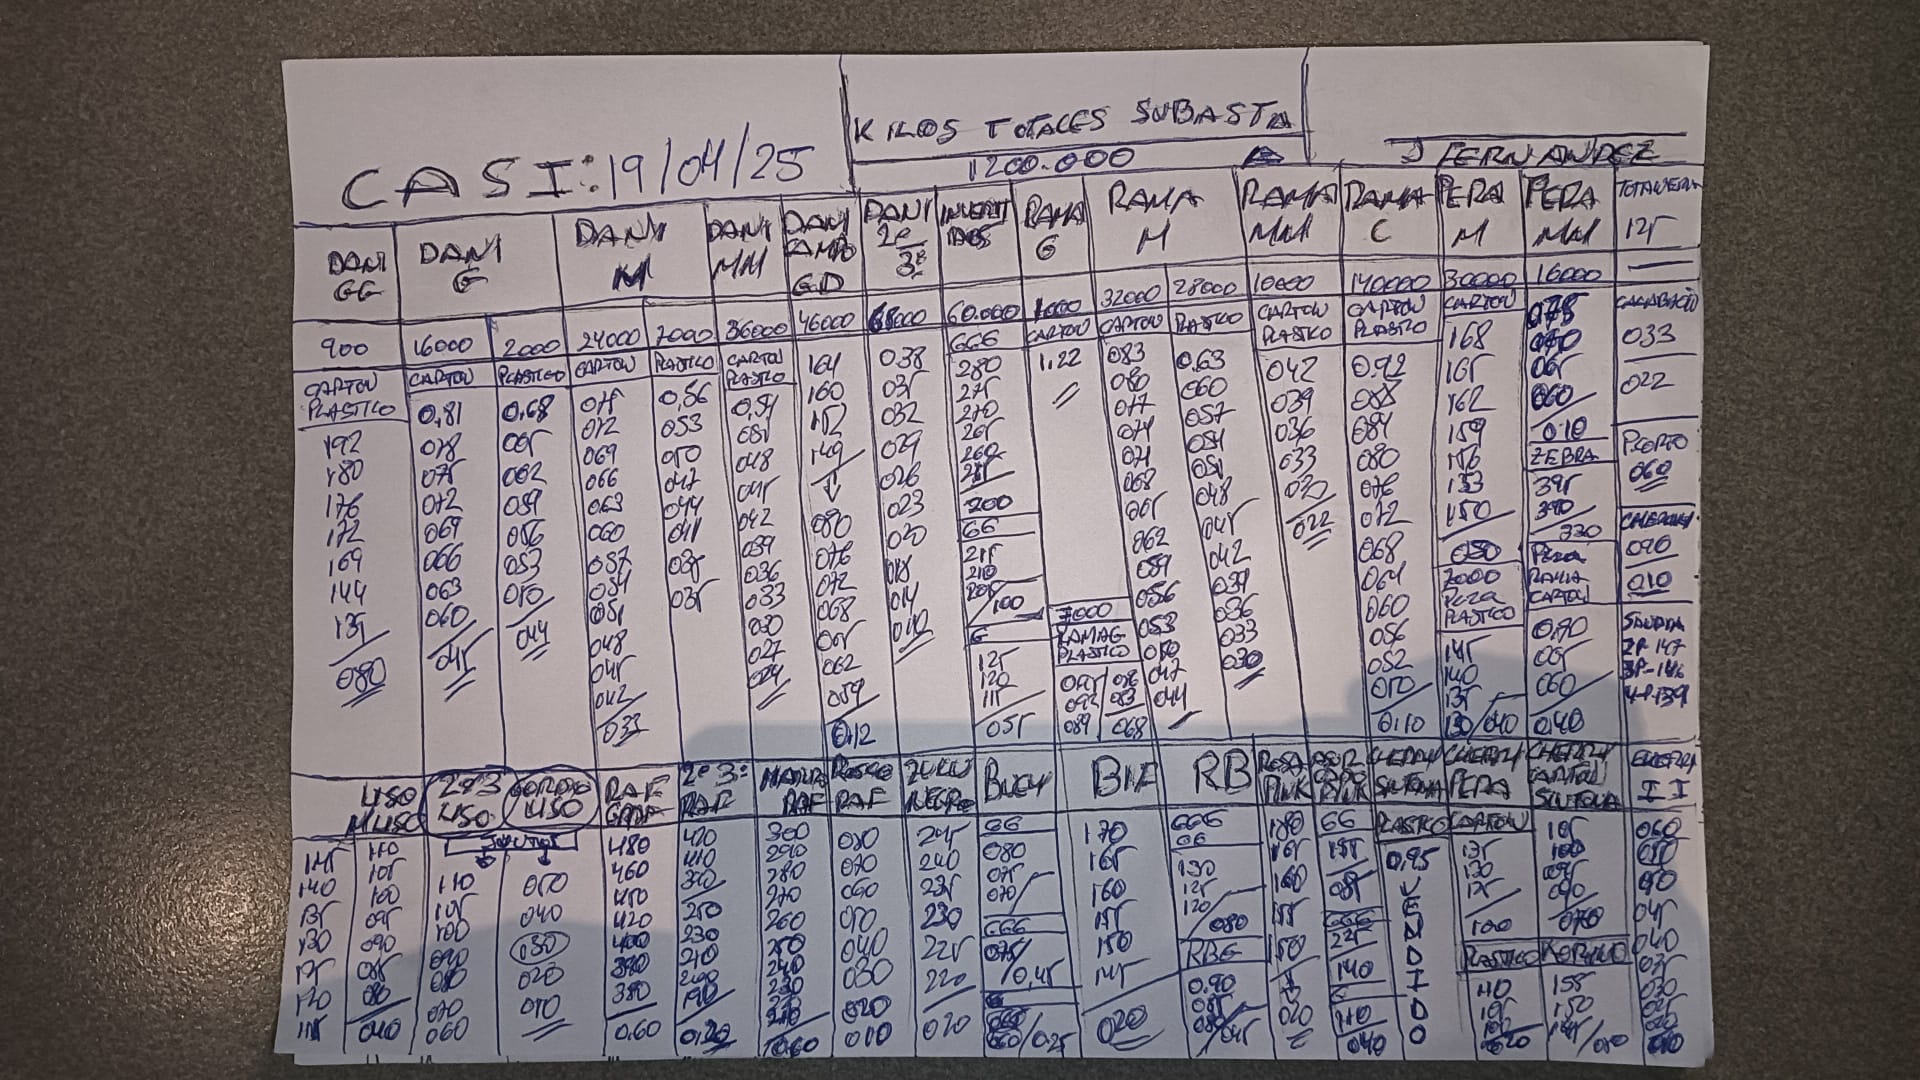 KILOS TOTALES SUBASTA
CASI: 19/04/25
1200.000
J FERNANDEZ
DANI GG
DANI G
DANI M
DANI MM
DANI CAMPO GD
DANI 2ª 3ª
RAMA G
RAMA M
RAMA MM
RAMA C
PERA M
PERA MM
125
900
16000
2000
24000
7000
36000
46000
60.000
1000
32000
28000
10000
140000
30000
16000
CARTON PLASTICO
CARTON
PLASTICO
CARTON
PLASTICO
CARTON PLASTICO
GGG
CARTON
CARTON
PLASTICO
CARTON PLASTICO
CARTON PLASTICO
CARTON
192
180
176
172
169
144
135
080
0,81
078
075
072
069
066
063
060
045
0,68
065
062
059
056
053
050
044
075
072
069
066
063
060
057
054
051
048
045
042
033
0,56
053
050
047
044
041
038
035
0,54
051
048
045
042
039
036
033
030
027
024
164
160
152
149
080
076
072
068
065
062
059
0,12
038
035
032
029
026
023
020
018
014
010
280
275
270
265
260
255
200
GG
215
210
205
100
G
125
120
115
055
1,22
7000
RAMA G
PLASTICO
095
092
089
086
083
068
083
080
077
074
071
068
065
062
059
056
053
050
047
044
0,63
060
057
054
051
048
045
042
039
036
033
030
042
039
036
033
030
022
0,92
088
084
080
076
072
068
064
060
056
052
050
0,10
168
165
162
159
156
153
150
050
7000
PERA
PLASTICO
145
140
135
130/040
075
070
065
060
010
ZEBRA
395
390
330
PERA
RAMA
CARTON
0,70
065
060
0,40
033
022
060
090
010
2P-147
3P-146
4P-139
LISO
M LISO
2ª3 LISO
GORDO LISO
RAF
2ª 3ª RAF
RAF
RAF
NEGRO
BUEY
RB
CHERRY PERA
145
140
135
130
125
120
115
110
105
100
095
090
085
080
040
110
105
100
090
080
070
060
050
040
030
020
010
480
460
450
420
400
390
380
0.60
420
410
390
250
230
210
200
190
0,20
300
290
280
270
260
250
240
230
210
0,60
080
070
060
050
040
030
020
010
245
240
235
230
225
220
020
GG
080
075
070
GGG
075
0,45
G
060/0,25
170
165
160
155
150
145
020
GGG
GG
130
125
120
080
RBG
0,90
085
080/045
180
165
160
155
150
020
GG
155
085
GGG
225
140
G
110
040
PLASTICO
0,95
VENDIDO
CARTON
135
130
125
100
PLASTICO
110
105
100
020
105
100
095
090
070
155
150
145/050
060
050
045
040
035
030
025
020
010